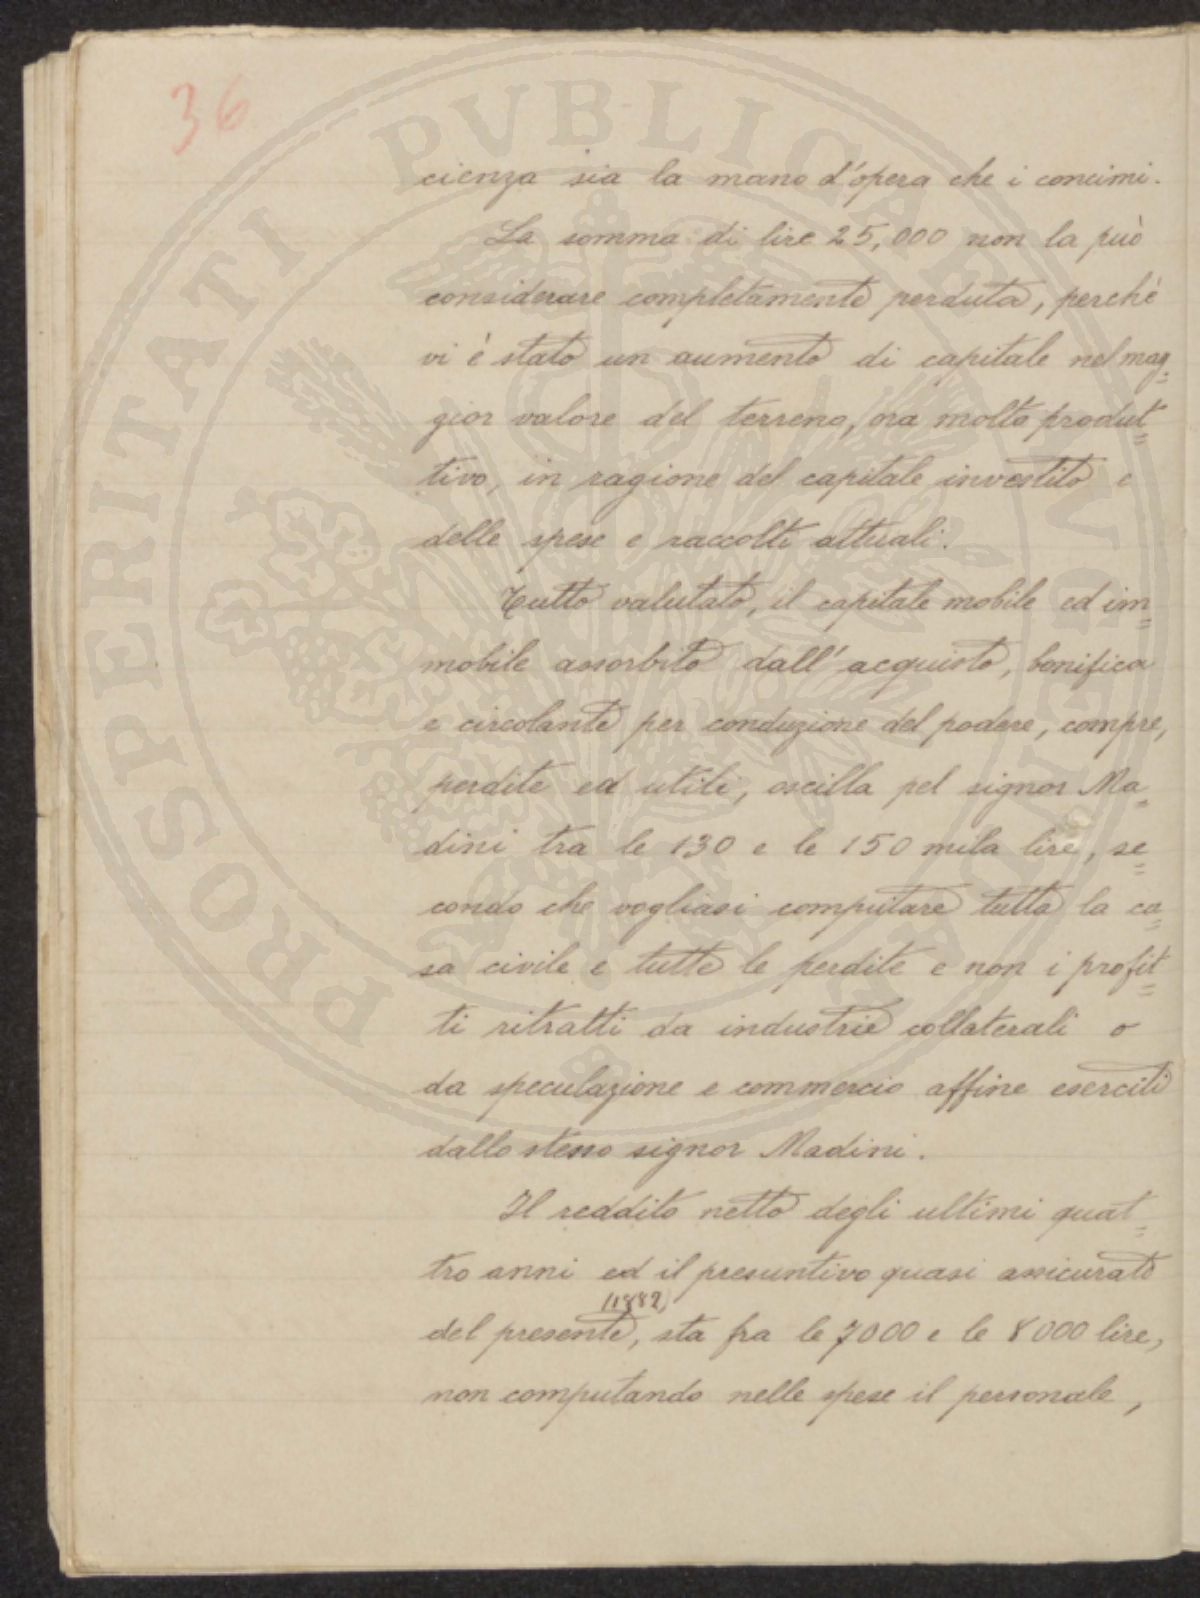 36
cienza sia la mano d'opera che i concimi.
La somma di lire 25,000 non la può
considerare completamente perduta, perchè
vi è stato un aumento di capitale nel mag=
gior valore del terreno, ora molto produt=
tivo, in ragione del capitale investito e
delle spese e raccolti attuali.
Tutto valutato, il capitale mobile ed im=
mobile assorbito dall'acquisto, bonifica
e circolante per conduzione del podere, compre,
perdite ed utili, oscilla pel signor Ma=
dini tra le 130 e le 150 mila lire, se=
condo che vogliasi computare tutta la ca=
sa civile e tutte le perdite e non i profit=
ti ritratti da industrie collaterali o
da speculazione e commercio affine eserciti
dallo stesso signor Madini.
Il reddito netto degli ultimi quat=
tro anni ed il presuntivo quasi assicurato
(1882)
del presente, sta fra le 7000 e le 8000 lire,
non computando nelle spese il personale,
PROSPERITATI PVBLICAE